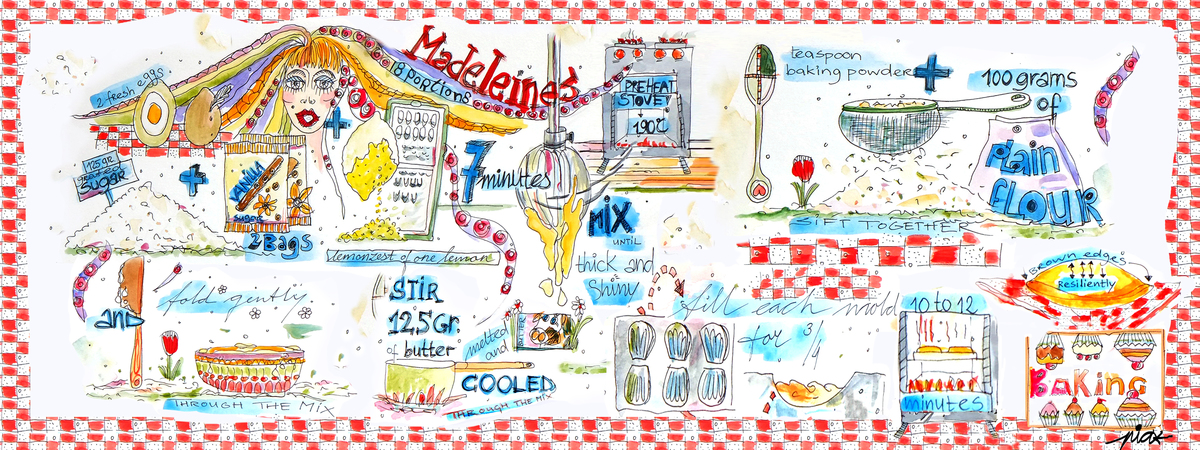 Madeleines
18 portions
2 fresh eggs
125 gr.
Sugar
+
VANILLA
sugar
2 Bags
+
lemonzest of one lemon
7 minutes
MIX
UNTIL
thick and
Shiny
PREHEAT
STOVE
190°C
teaspoon
baking powder +
100 grams
of
Plain
FLOUR
SIFT TOGETHER
and
fold gently
THROUGH THE MIX
STIR
125Gr.
of butter
melted
and
BUTTER
COOLED
THROUGH THE MIX
fill each mold
for 3/4
10 to 12
minutes
Brown edges
Resiliently
BAKING